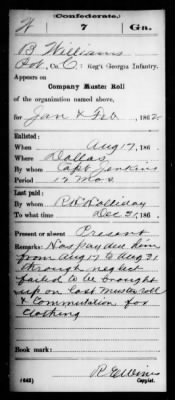 (Confederate.)
W 7 Ga.
B Williams
Pvt, Co. C, 7 Reg't Georgia Infantry.
Appears on
Company Muster Roll
of the organization named above,
for Jan & Feb, 1862
Enlisted:
When Aug 17, 186 .
Where Dallas
By whom Capt Jenkins
Period 12 Mos
Last paid:
By whom R K Holliday
To what time Dec 31, 186 .
Present or absent Present
Remarks: Has pay due him
from Aug 17 to Aug 31
through neglect
failed to be brought
up on last muster roll
& Commutation for
clothing
Book mark:
(642)
Copyist.